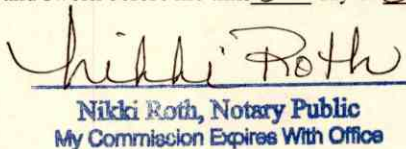 Nikki Roth
Nikki Roth, Notary Public
My Commiscion Expires With Office